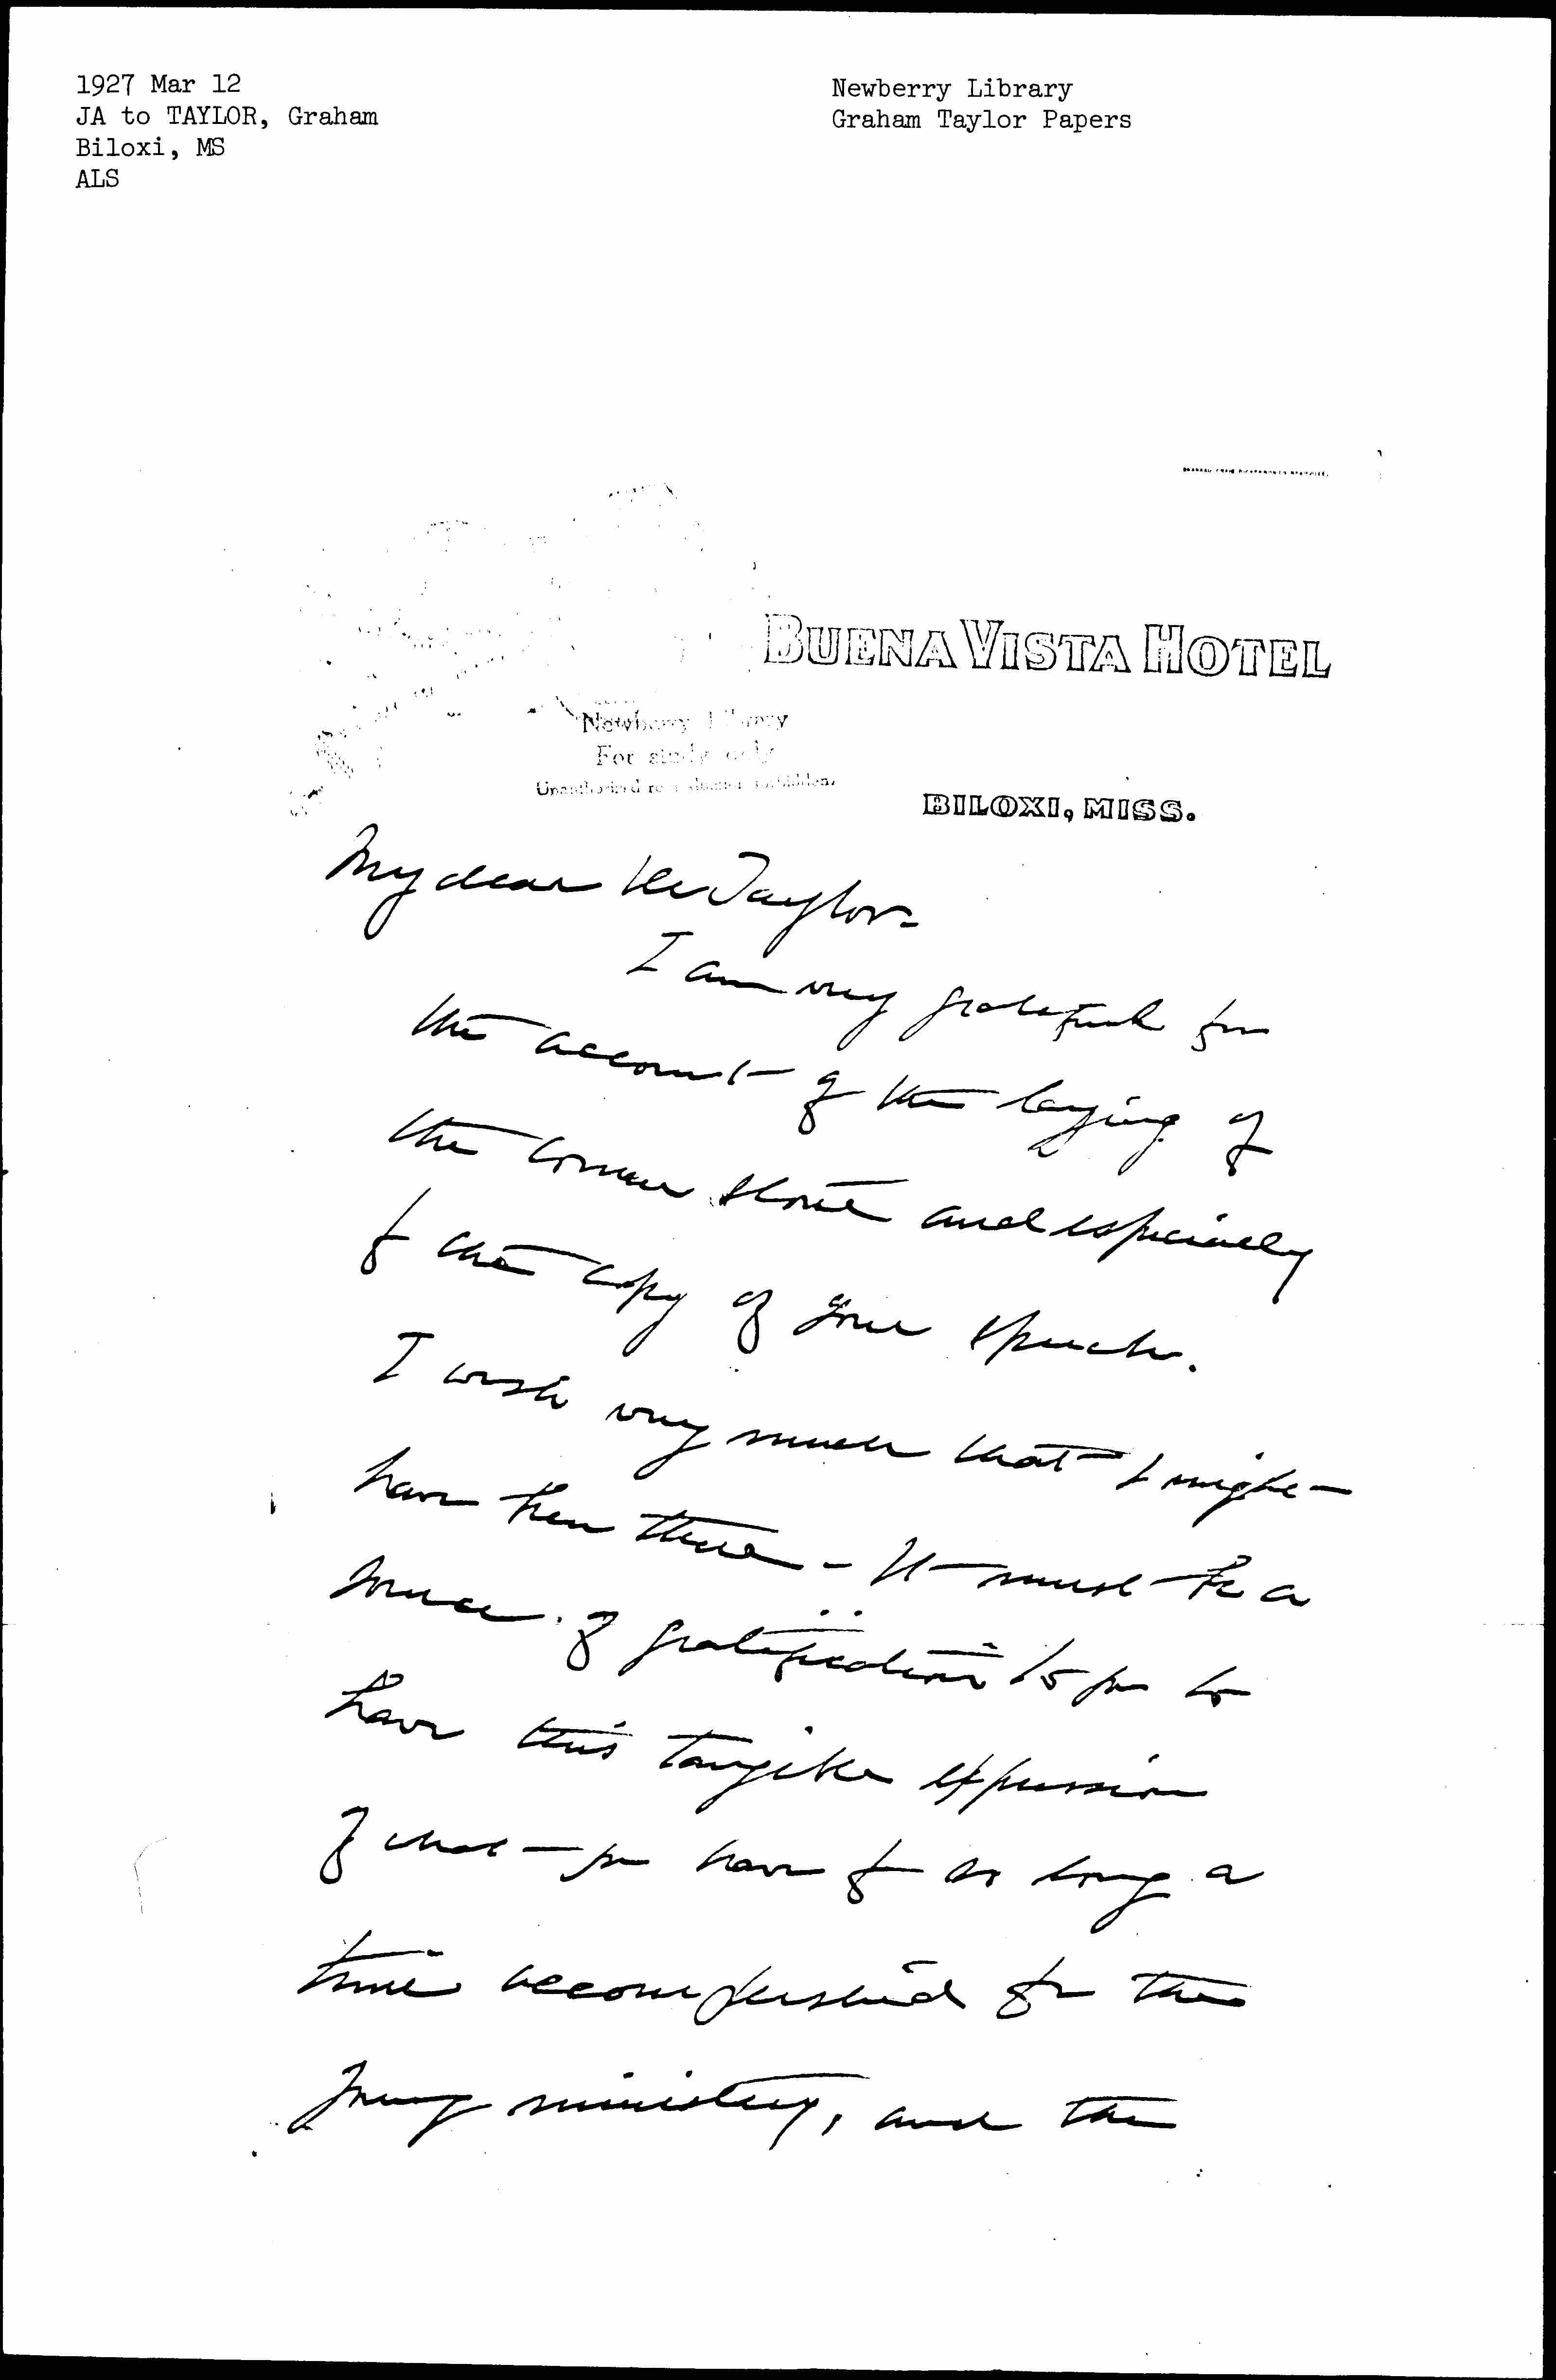 1927 Mar 12
JA to TAYLOR, Graham
Biloxi, MS
ALS
Newberry Library
Graham Taylor Papers
BUENA VISTA HOTEL
Newberry Library
For study only
Unauthorized reproduction forbidden.
BILOXI, MISS.
My dear Mr Taylor-
I am very grateful for
the account of the laying of
the corner stone and especially
for the copy of your speech.
I wish very much that I might
have been there - It must be a
source of gratification to you to
have this tangible expression
of what you have for so long a
time accomplished for the
young ministry, and the